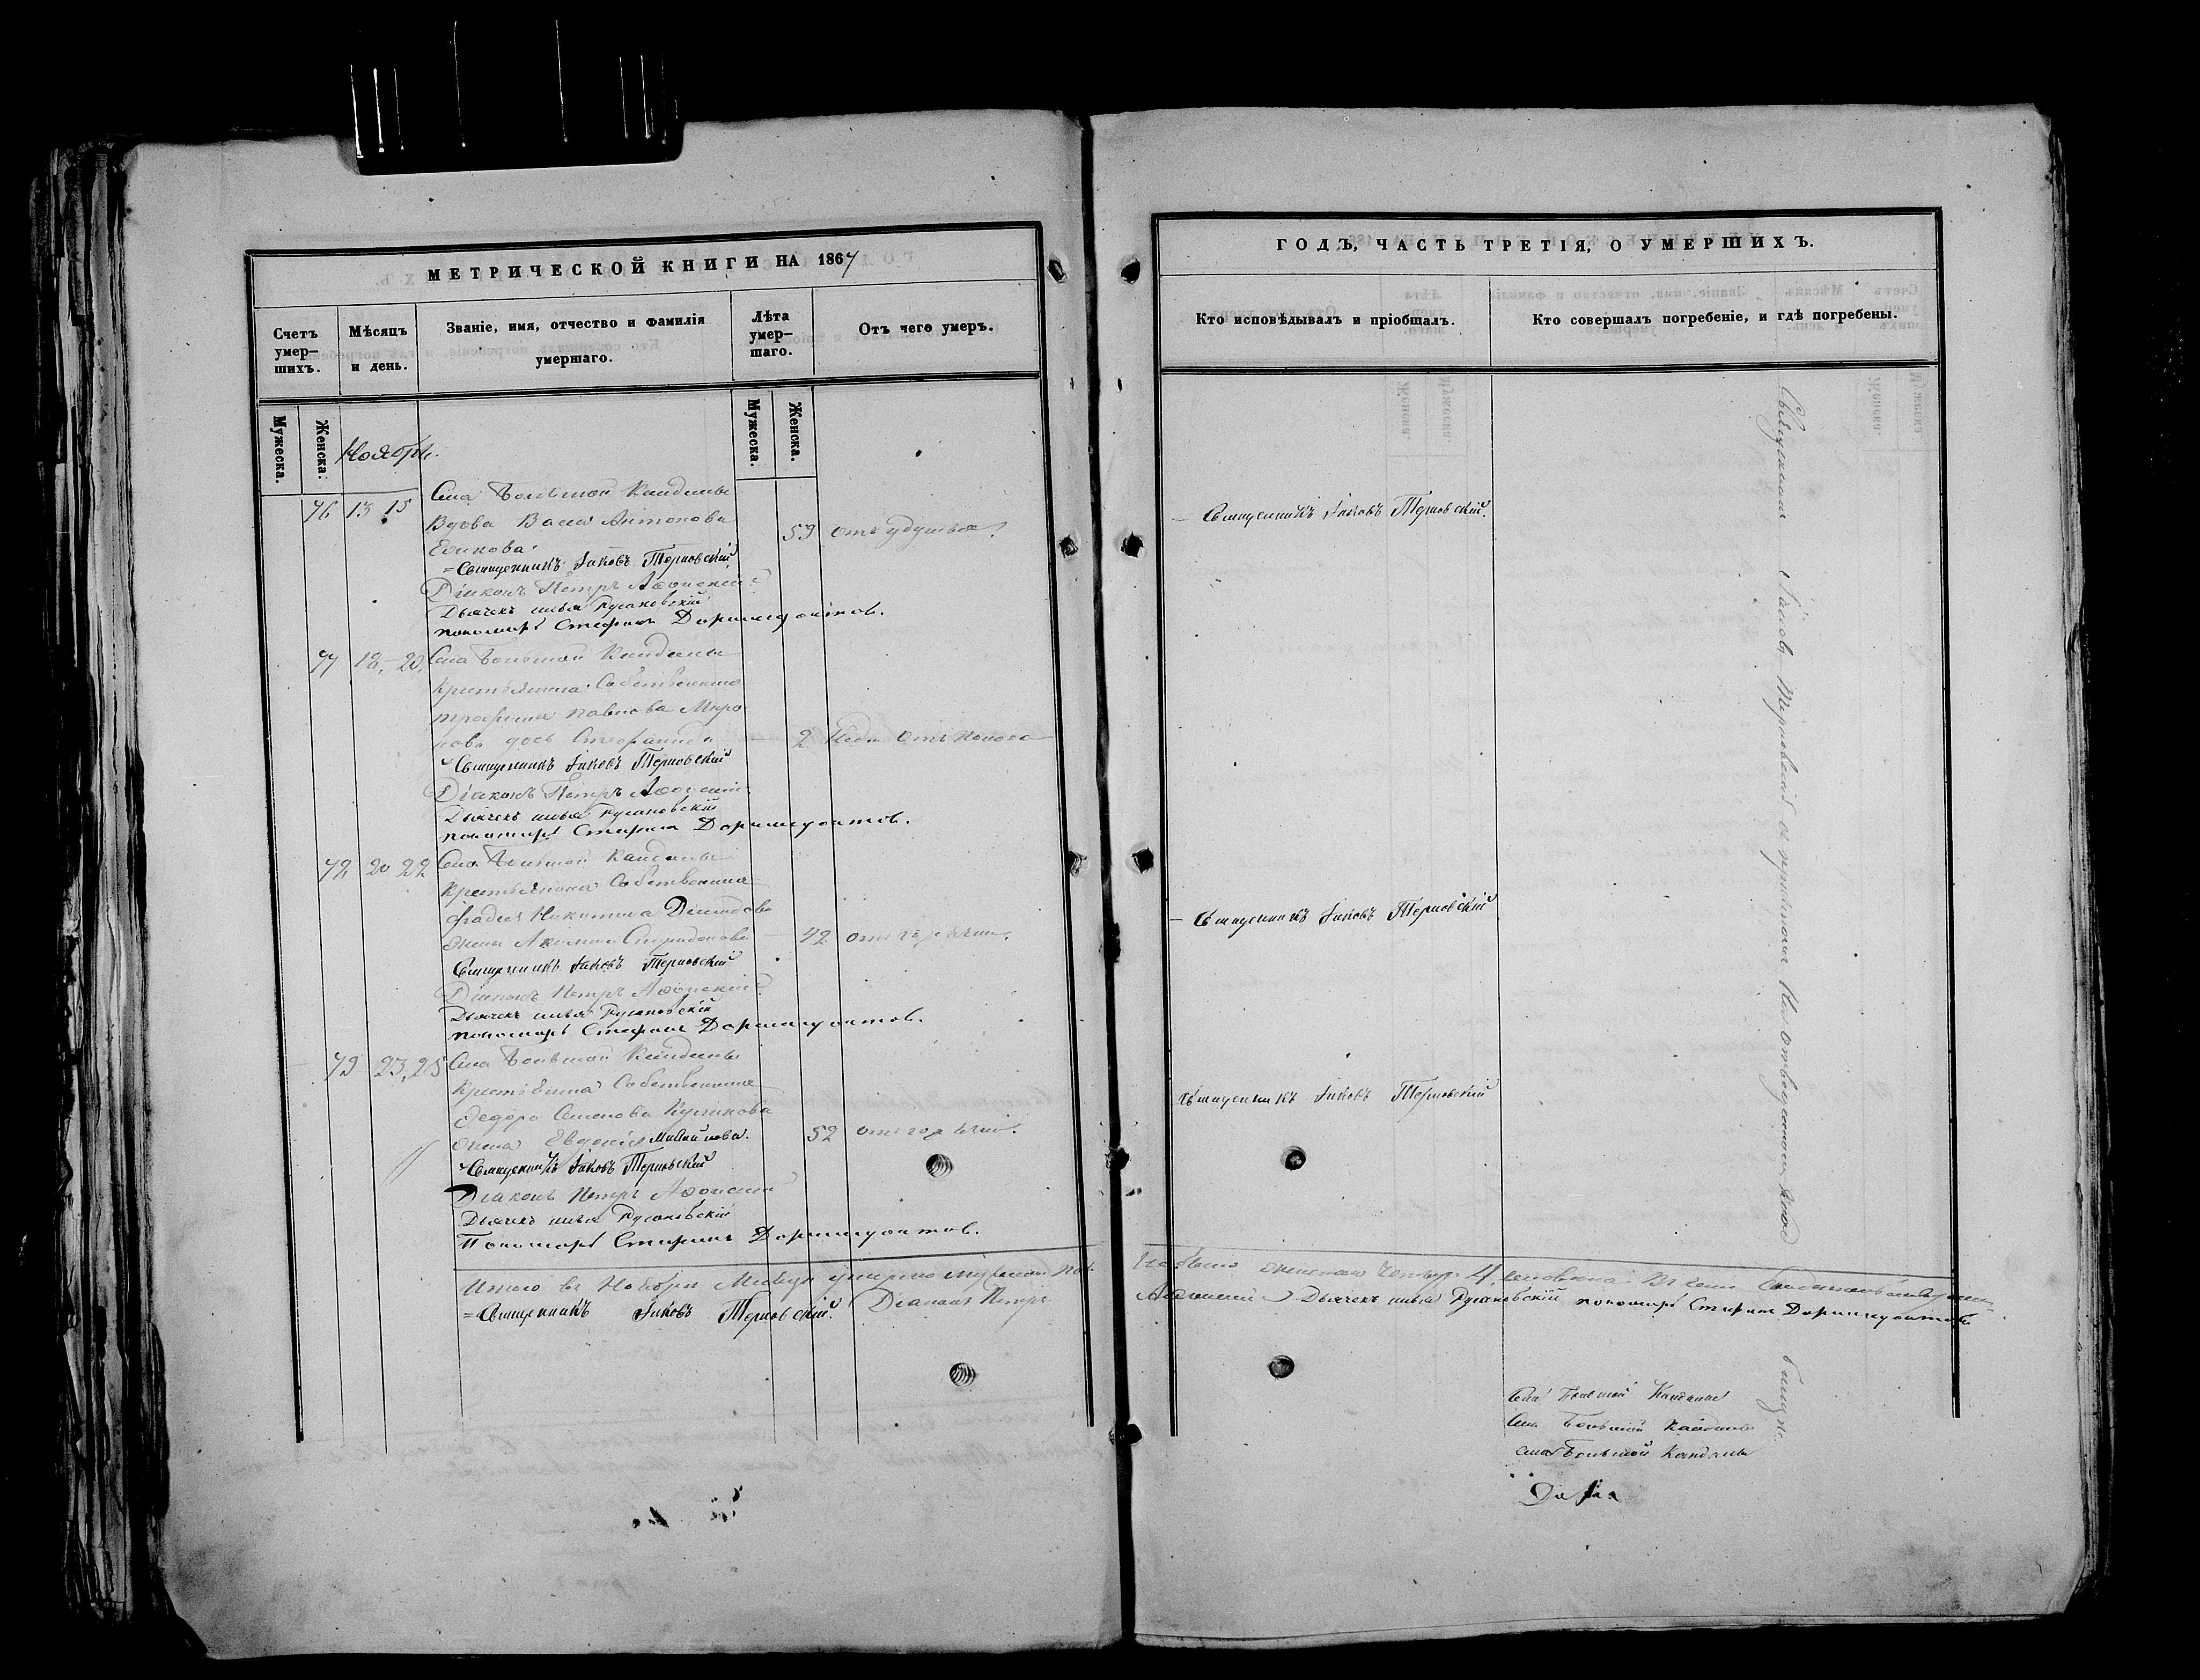 МЕТРИЧЕСКОЙ КНИГИ НА 1867
Счетъ умер-шихъ.
Мѣсяцъ и день.
Званіе, имя, отчество и фамилія умершаго.
Лѣта умер-шаго.
Отъ чего умеръ.
Мужеска.
Женска.
Мужеска.
Женска.
Ноябрь.
76 13 15 Села Большой Кандалы
Вдова Васса Антонова
59 отъ удушья.
Священникъ Іаковъ Терновскій
Діаконъ Петръ
Дьячекъ Илья Русановскій
пономарь Стефанъ Доримедонтов.
77 18, 20, Села Большой Кандалы
Крестьянина Собственника
Трофима Павлова Миро
нова дочь Стефанида
2 Нед. отъ поноса
Священникъ Іаковъ Терновскій
Діаконъ Петръ
Дьячекъ Илья Русановскій
пономарь Стефанъ Доримедонтов.
78 20 22 Села Большой Кандалы
Крестьянина Собственника
Фадея Никитина Демидова
жена Спиридонова
42 отъ горячки.
Священникъ Іаковъ Терновскій
Діаконъ Петръ
Дьячекъ Илья Русановскій
пономарь Стефанъ Доримедонтов.
79 23, 25 Села Большой Кандалы
Крестьянина Собственника
Федора Семенова Куликова
жена Евдокия Михайлова.
52 отъ горячки.
Священникъ Іаковъ Терновскій
Діаконъ Петръ
Дьячекъ Илья Русановскій
Пономарь Стефанъ Доримедонтов.
Итого въ Ноябри Месяце умерло мужеска пол.
Священникъ Іаковъ Терновскій. Діаконъ Петръ
ГОДЪ, ЧАСТЬ ТРЕТІЯ, О УМЕРШИХЪ.
Кто исповѣдывалъ и пріобщалъ.
Кто совершалъ погребеніе, и гдѣ погребены.
Священникъ Іаковъ Терновскій.
Священникъ Іаковъ Терновскій
Священникъ Іаковъ Терновскій
Священникъ Іаковъ Терновскій съ причтомъ На отведенномъ клад
бище.
не было женскаго четыре 4 человека.
Дьячекъ Илья Русановскій пономарь Стефанъ Доримедонтов
Села Большой Кандалы
Села Большой Кандалы
села Большой Кандалы